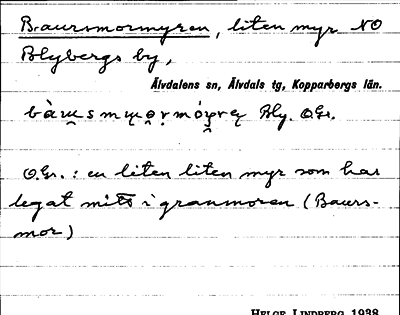 Baursmormyren, liten myr NO
Blybergs by,
Älvdalens sn, Älvdals tg, Kopparbergs län.
Bly. O.Gr.
O.Gr.: en liten liten myr som har
legat mitt i granmoren (Baurs-
mor)
HELGE LINDBERG 1938